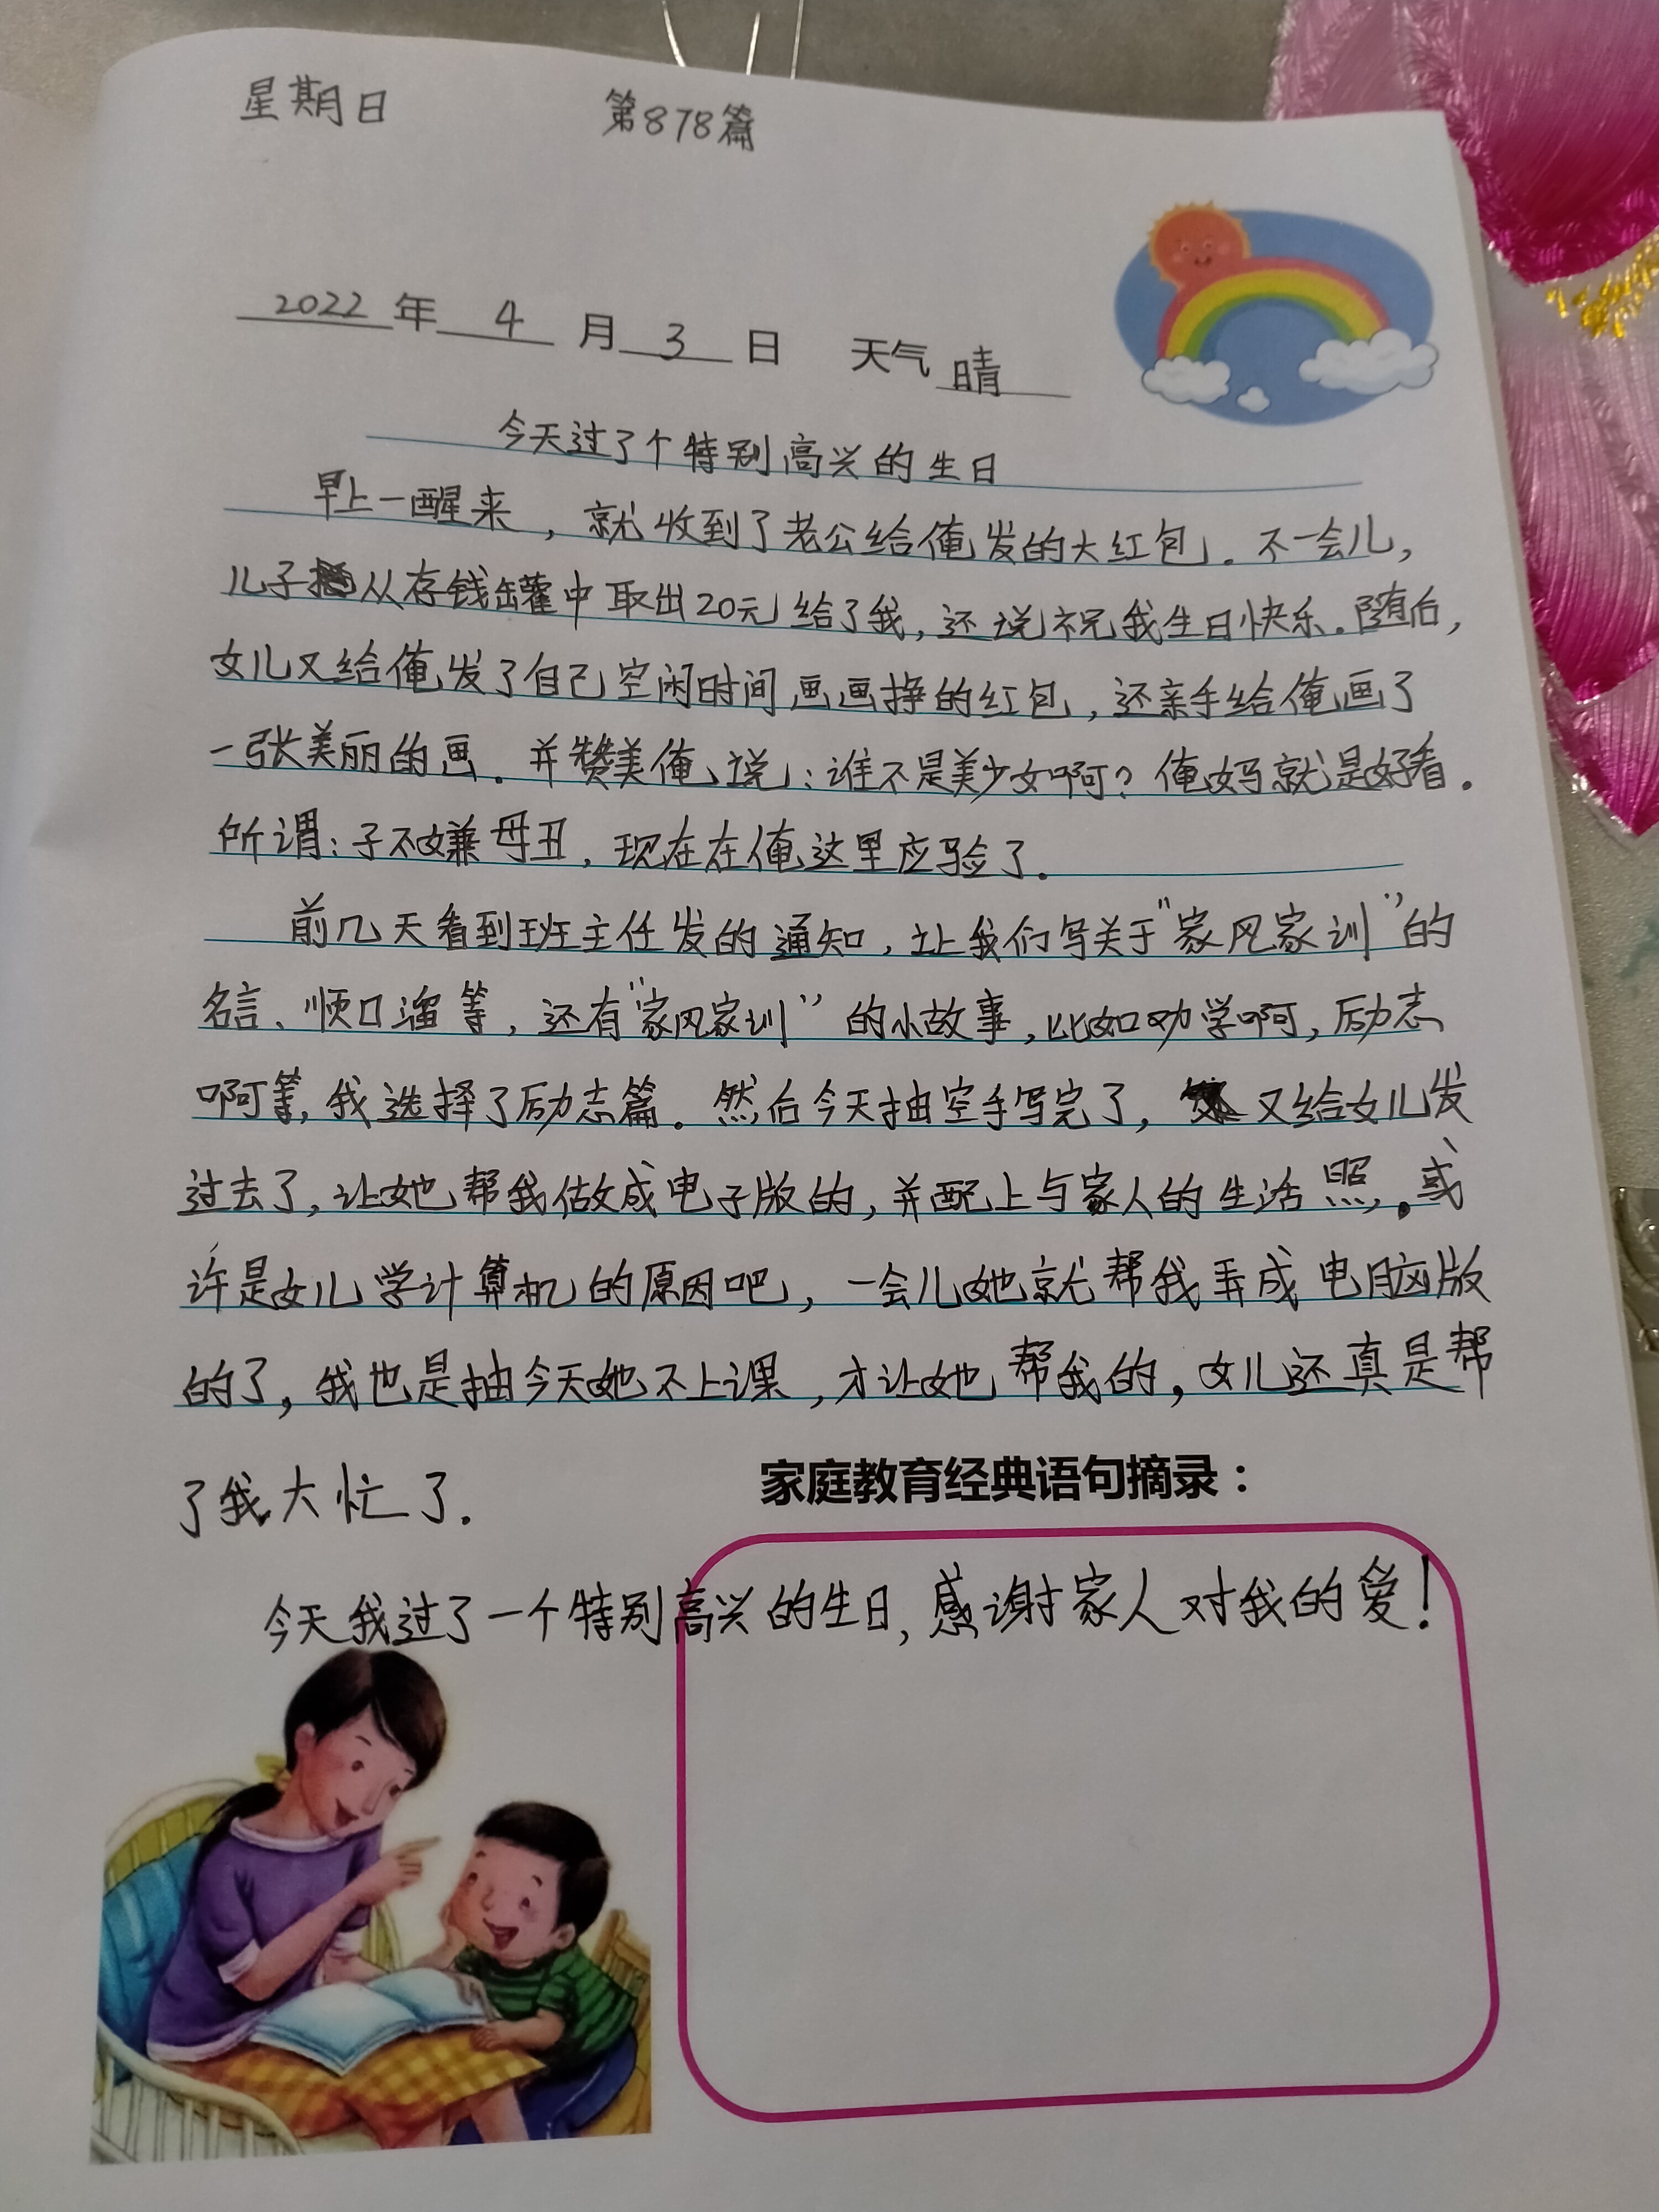 星期日 第878篇
2022年4月3日 天气晴
今天过了个特别高兴的生日
早上一醒来，就收到了老公给俺发的大红包。不一会儿，
儿子从存钱罐中取出20元给了我，还说祝我生日快乐。随后，
女儿又给俺发了自己空闲时间画画挣的红包，还亲手给俺画了
一张美丽的画。并赞美俺说：谁不是美少女啊？俺妈就是好看。
所谓：子不嫌母丑，现在在俺这里应验了。
前几天看到班主任发的通知，让我们写关于“家风家训”的
名言、顺口溜等，还有“家风家训”的小故事，比如劝学啊，励志
啊等，我选择了励志篇。然后今天抽空手写完了，又给女儿发
过去了，让她帮我做成电子版的，并配上与家人的生活照。或
许是女儿学计算机的原因吧，一会儿她就帮我弄成电脑版
的了，我也是抽今天她不上课，才让她帮我的，女儿还真是帮
了我大忙了。
家庭教育经典语句摘录：
今天我过了一个特别高兴的生日，感谢家人对我的爱！